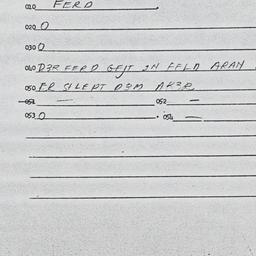 010 FERD
020 O
030 O
040 D3R FERD GEJT IN FELD ARAN
050 ER SILEPT D3M AK3R
051 — 052 —
053 O 054 —